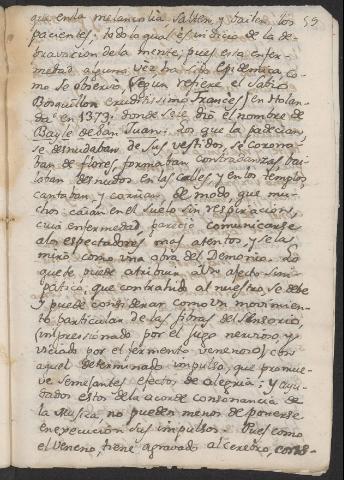 que en la melancolia salten, y bailen los 59
pacientes; todo lo qual es indicio de la de-
pravacion de la mente; pues esta enfer-
medad alguna vez ha sido Epidemica, co-
mo se observó, (segun refiere el Sabio
Bosquillon eruditissimo frances) en Holan-
da en 1373, donde se le dió el nombre de
Bayle de San Juan: los que la padecian,
se desnudaban de sus vestidos, se corona-
ban de flores, formaban contradanzas, bai-
laban desnudos en las calles, y en los templos,
cantaban y corrian de modo que mu-
chos caian en el suelo sin respiracion,
cuia enfermedad, pareció comunicarse
a los espectadores mas atentos, y se la
miró como una obra del Demonio. Lo
que se puede atribuir a un afecto sim-
patico, que contrahido al nuestro, se debe
y puede considerar como un movimien-
to particular de las fibras del Sensorio,
(impresionado por el jugo nervioso, y
viciado por el fermento venenoso) con
aquel determinado impulso, que promue-
ve semejantes efectos de alegria; y ayu-
dados estos de la acorde consonancia de
la Musica no pueden menos de ponerse
en execucion sus impulsos. Pues como
el veneno, tiene agravado al cerebro, cons-